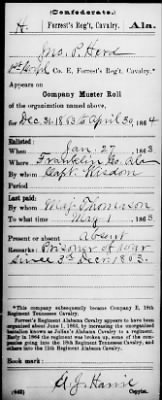 (Confederate.)
H Forrest's Reg't, Cavalry. Ala.
Jno. P. Herd
Co. E, Forrest's Reg't, Cavalry.*
Appears on
Company Muster Roll
of the organization named above,
for Dec 31, 1863 to April 30, 1864
Enlisted:
When Jan 27, 1863
Where Franklin Co. Ala
By whom Capt. Wisdom
Period
Last paid:
By whom Maj. Thomerson
To what time May 1, 1863
Present or absent Absent
Remarks: Prisoner of war
since 3d Decr. 1863.
*This company subsequently became Company E, 18th
Regiment Tennessee Cavalry.
Forrest's Regiment Alabama Cavalry appears to have been
organized about June 1, 1864, by increasing the unorganized
battalion known as Julian's Alabama Cavalry to a regiment.
Early in 1864 the regiment was broken up, some of the com-
panies going into the 18th Regiment Tennessee Cavalry, and
others into the 13th Regiment Alabama Cavalry.
Book mark:
(642) Copyist.